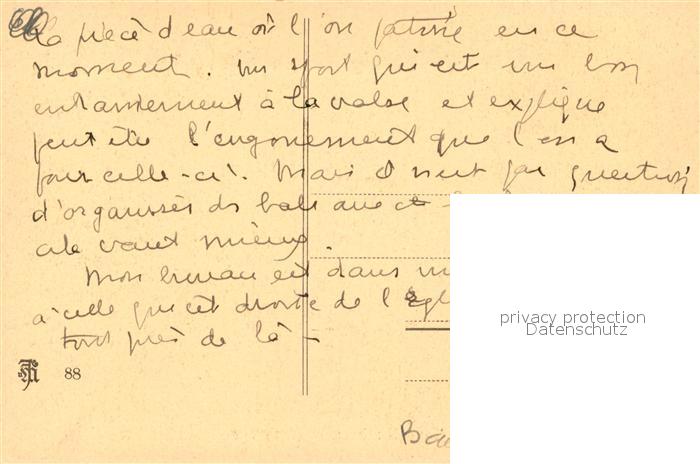 La pièce d'eau où l'on patine en ce
moment. un sport qui est un bon
entrainement à la valse et explique
peut être l'engouement que l'on a
pour celle-ci. Mais il n'est pas question
d'organiser des bals avec
cela vaut mieux.
Mon bureau est dans
à celle qui est droite de l'
tout près de là -
88
privacy protection
Datenschutz